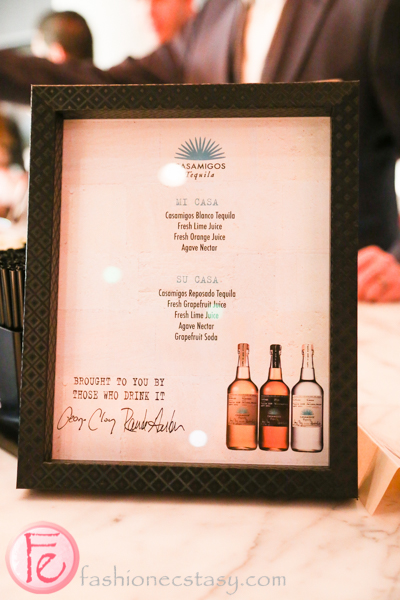 CASAMIGOS
Tequila
MI CASA
Casamigos Blanco Tequila
Fresh Lime Juice
Fresh Orange Juice
Agave Nectar
SU CASA
Casamigos Reposado Tequila
Fresh Grapefruit Juice
Fresh Lime Juice
Agave Nectar
Grapefruit Soda
BROUGHT TO YOU BY
THOSE WHO DRINK IT
Fe
fashionecstasy.com